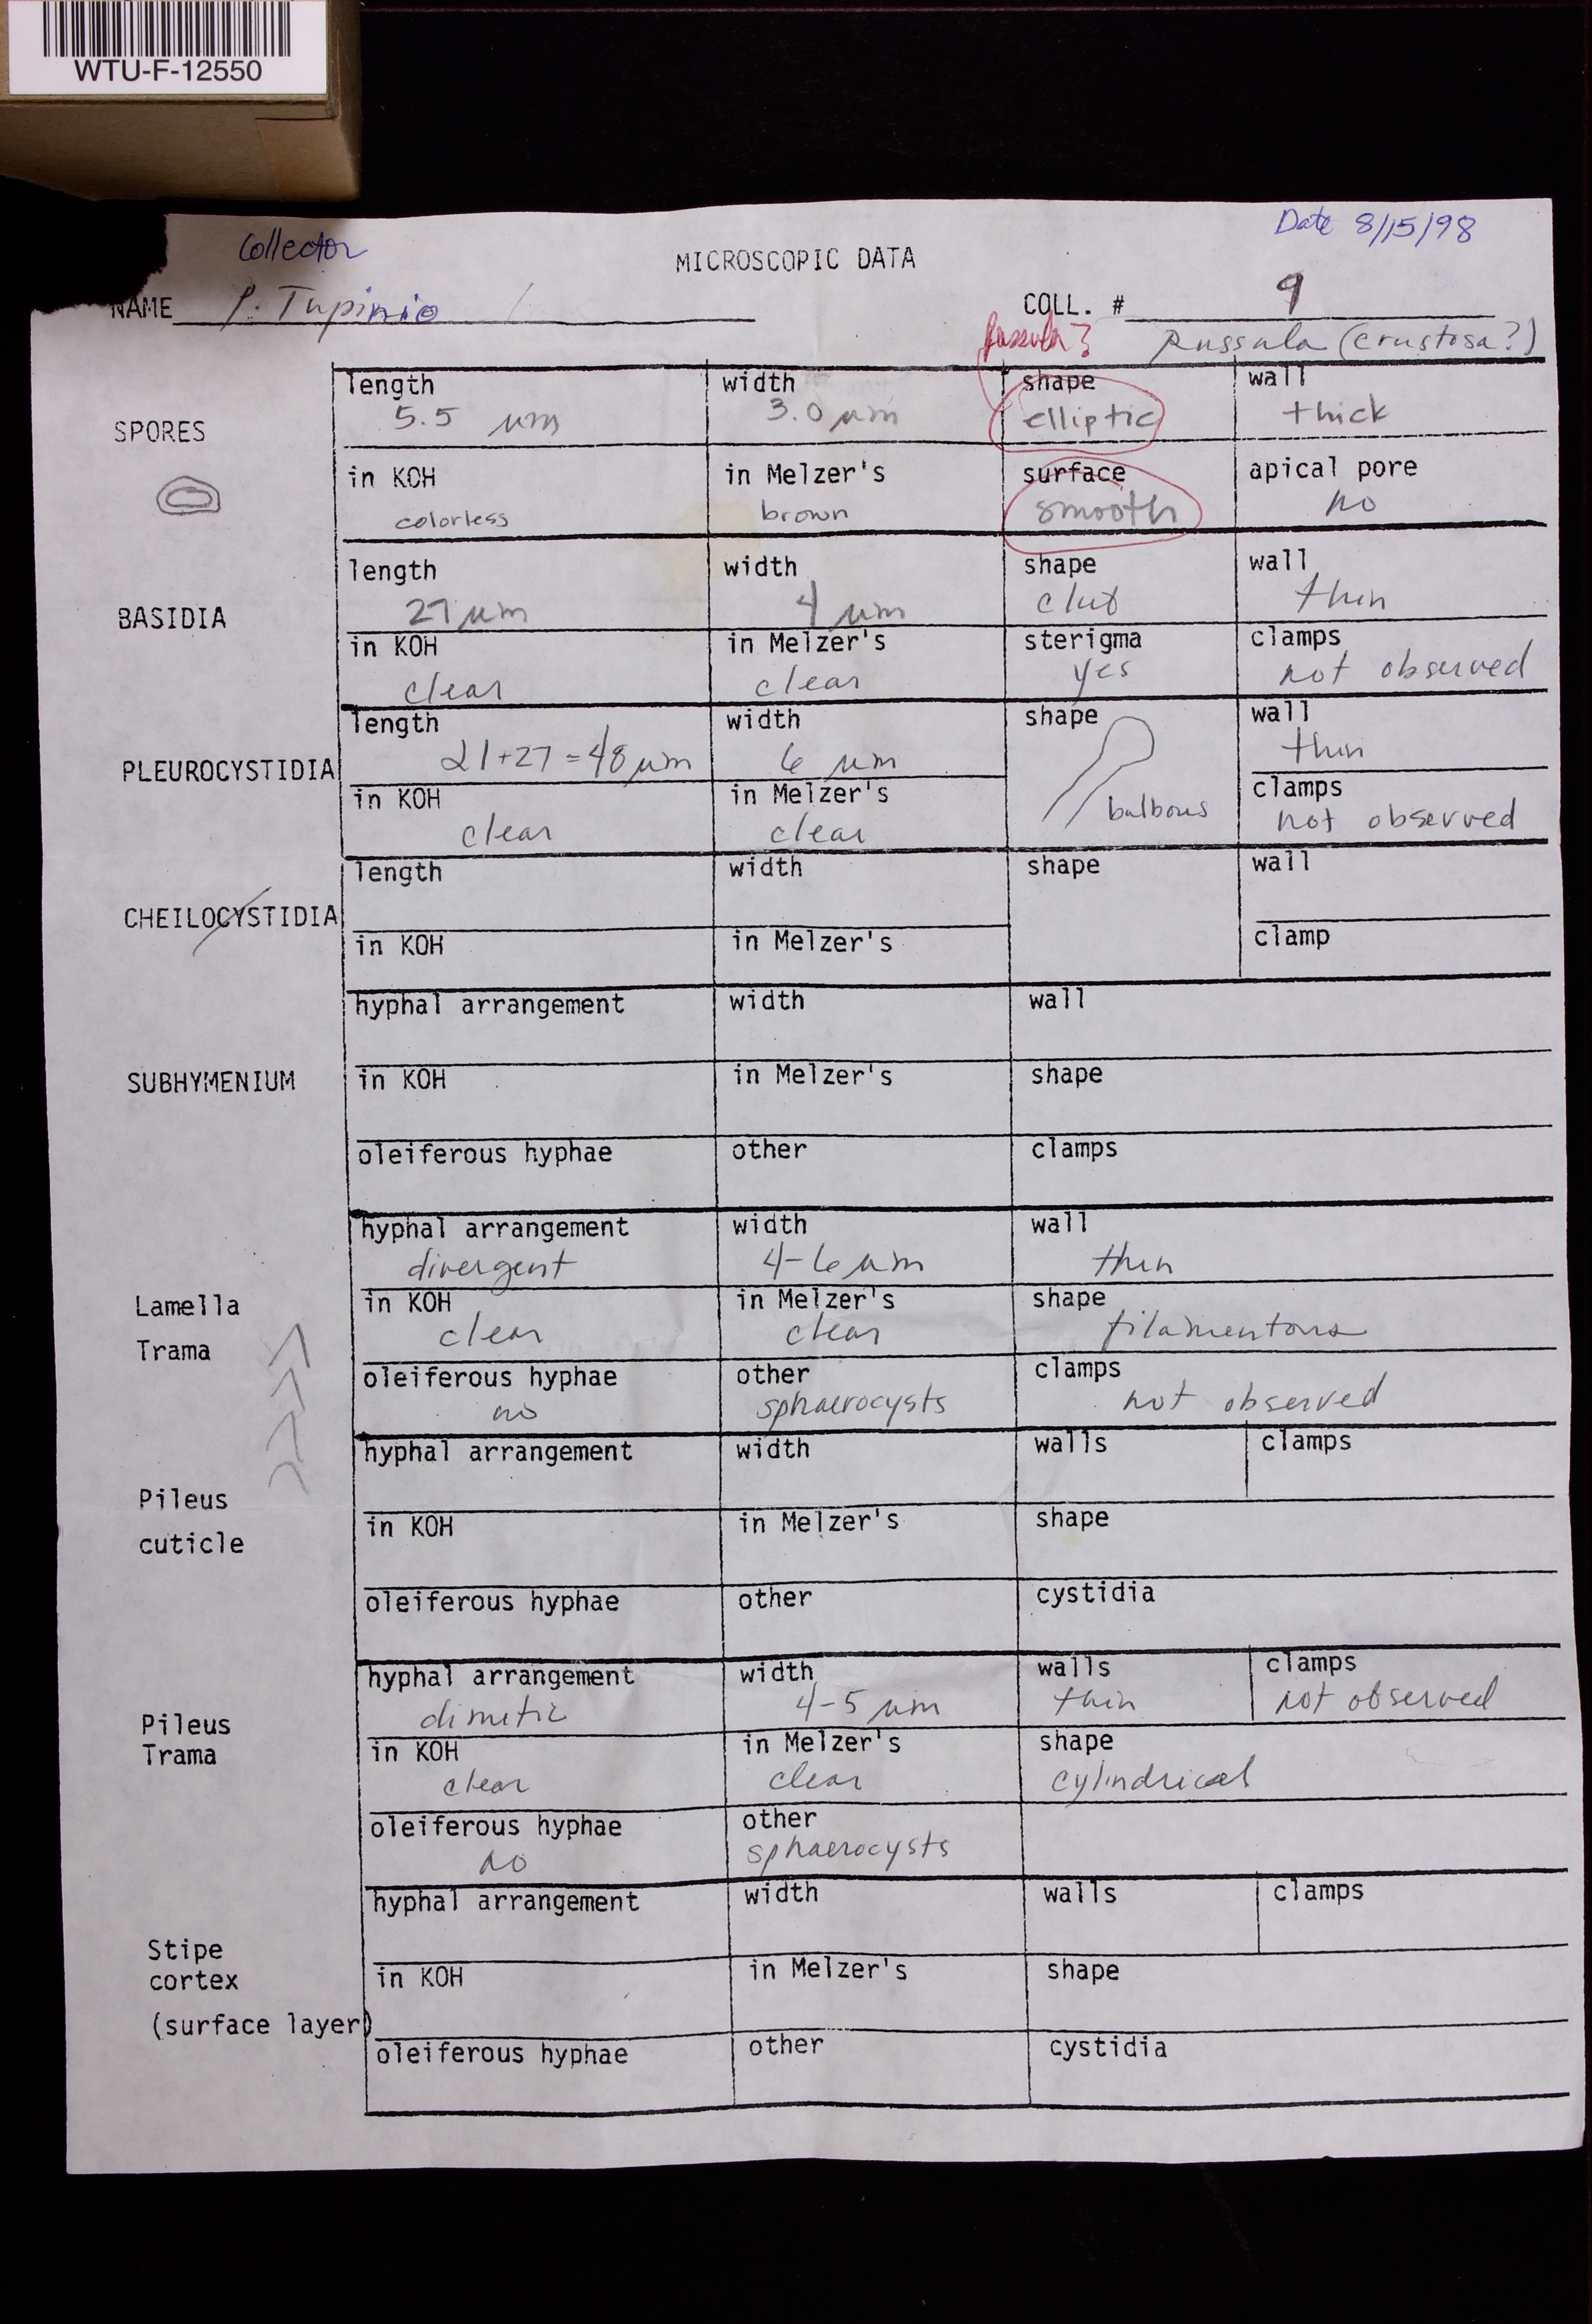 WTU-F-12550
Collector
Date 8/15/98
MICROSCOPIC DATA
NAME P. Tupinio
COLL. # 9
Russula? Russula (crustosa?)
length width shape wall
5.5 µm 3.0 µm elliptic thick
SPORES
in KOH in Melzer's surface apical pore
colorless brown smooth no
length width shape wall
27 µm 4 µm club thin
BASIDIA
in KOH in Melzer's sterigma clamps
clear clear yes not observed
length width shape wall
21+27=48 µm 6 µm thin
PLEUROCYSTIDIA
in KOH in Melzer's clamps
clear clear bulbous not observed
length width shape wall
CHEILOCYSTIDIA
in KOH in Melzer's clamp
hyphal arrangement width wall
SUBHYMENIUM in KOH in Melzer's shape
oleiferous hyphae other clamps
hyphal arrangement width wall
divergent 4-6 µm thin
Lamella in KOH in Melzer's shape
Trama clear clear filamentous
oleiferous hyphae other clamps
no sphaerocysts not observed
hyphal arrangement width walls clamps
Pileus
cuticle in KOH in Melzer's shape
oleiferous hyphae other cystidia
hyphal arrangement width walls clamps
dimitic 4-5 µm thin not observed
Pileus
Trama in KOH in Melzer's shape
clear clear cylindrical
oleiferous hyphae other
no sphaerocysts
hyphal arrangement width walls clamps
Stipe
cortex in KOH in Melzer's shape
(surface layer)
oleiferous hyphae other cystidia